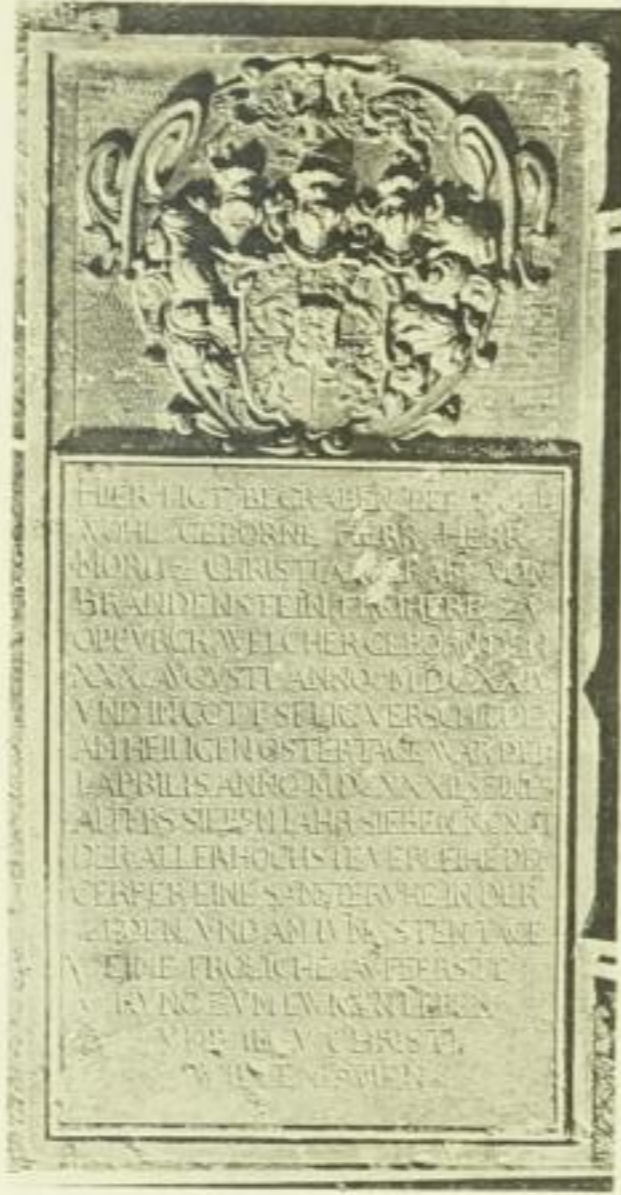 HIER LIGT BEGRABEN DER
WOHL GEBORNE HERR HERR
MORITZ CHRISTIAN GRAF VON
BRANDENSTEIN FROHERR ZV
OPPVRCK WELCHER GEBORN DEN
XXX AVGVSTI ANNO MDCXXIV
VND IN GOTT SELIG VERSCHIEDE
AM HEILIGEN OSTERTAGE WAR DER
I APRILIS ANNO MDCXXXII SEINES
ALTERS SIEBEN IAHR SIEBEN MONAT
DER ALLERHOCHSTE VERLEIHE DE
CERPER EINE SANFTE RVHE IN DER
ERDEN VND AM IVNGSTEN TAGE
EINE FROLICHE AVFFERSTE
HVNG ZVM EWIGEN LEBEN
VMB IESV CHRISTI
WILLEN AMEN